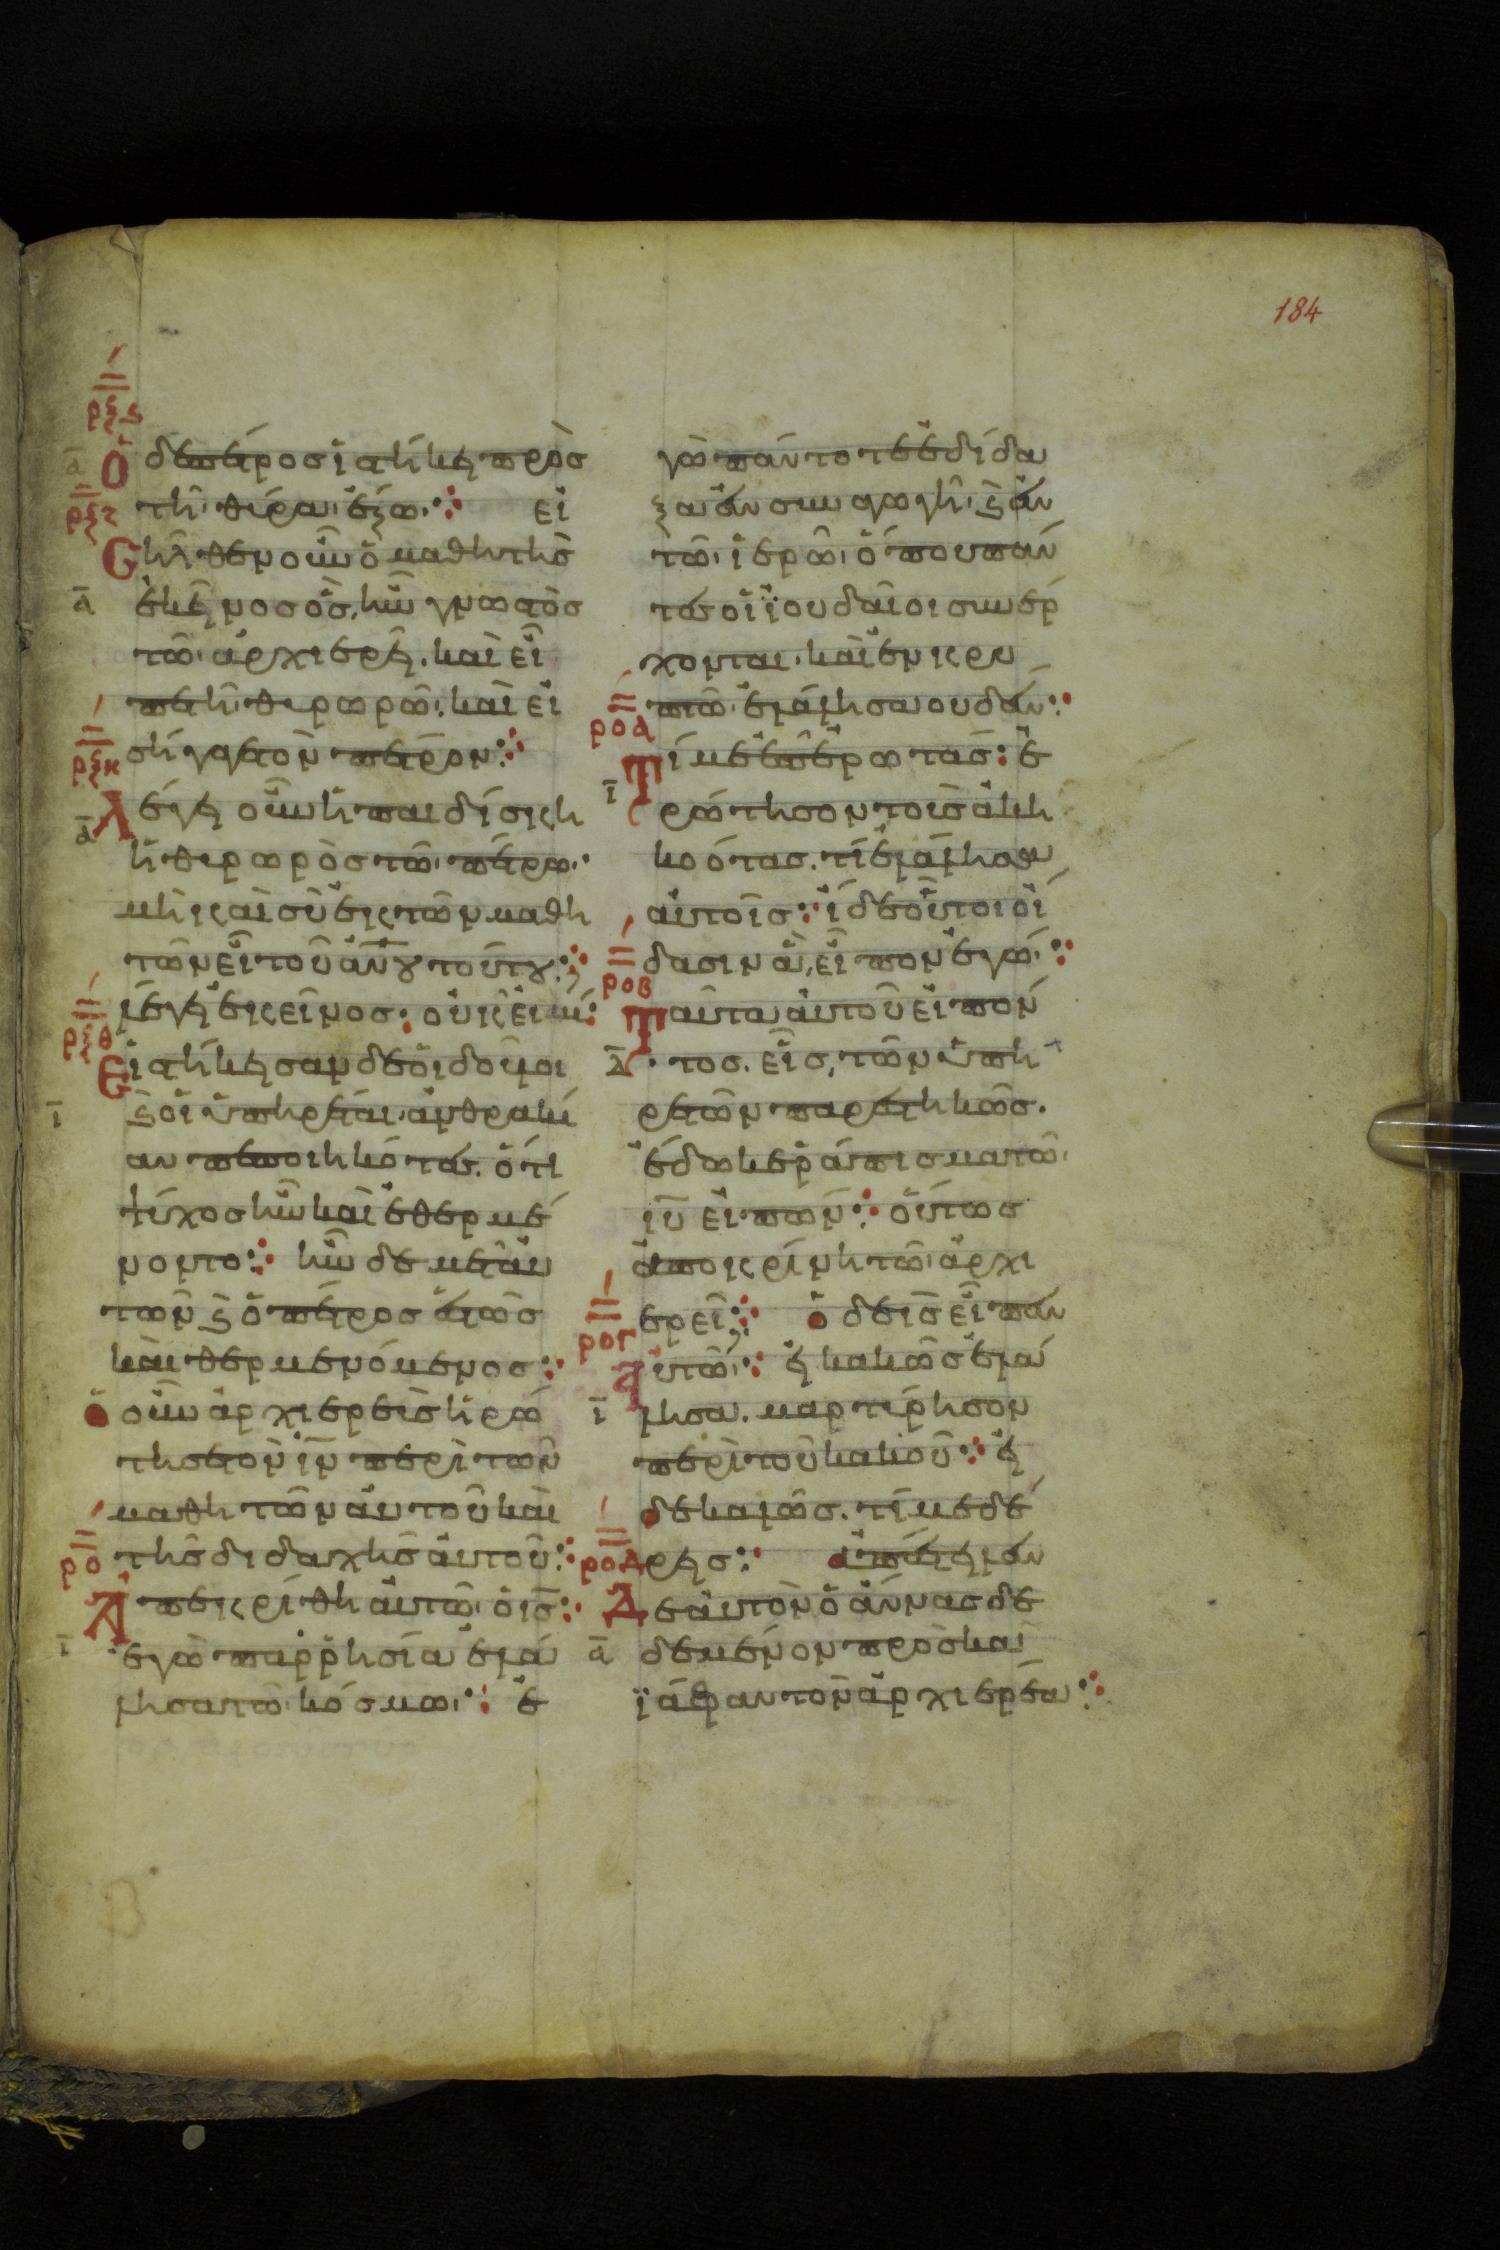 184
ρξς
ὁ δὲ πέτροσ ἱστήκει πρὸσ
τῆ θύρα ἔξω· εἰ
ρξζ
σῆλθεν οὖν ὁ μαθητὴσ
ἐκεῖνοσ ὃσ ἦν γνωστὸσ
τῶ ἀρχιερεῖ. καὶ εἶ
πε τῆ θυρωρῶ. καὶ εἰ
σήγαγε τὸν πέτρον
ρξη
λέγει οὖν ἡ παιδίσκη
ἡ θυρωρὸσ τῶ πέτρω·
μὴ καὶ σὺ ἐκ τῶν μαθη
τῶν εἶ τοῦ ἀνου τούτου;
λέγει ἐκεῖνοσ· οὐκ εἰμί·
ρξθ
εἱστήκεισαν δὲ οἱ δοῦλοι
καὶ οἱ ὑπηρέται ἀνθρακί
αν πεποιηκότεσ. ὅτι
ψύχοσ ἦν καὶ ἐθερμέ
νοντο· ἦν δὲ μετ' αὐ
τῶν καὶ ὁ πέτροσ ἑστῶσ
καὶ θερμενόμενοσ·
ὁ οὖν ἀρχιερεὺσ ἠρώ
τησε τὸν ιν περὶ τῶν
μαθητῶν αὐτοῦ καὶ
τῆσ διδαχῆσ αὐτοῦ·
ρο
ἀπεκρίθη αὐτῶ ὁ ισ·
ἐγὼ παρρησία ἐλά
λησα τῶ κόσμω· ἐ
γὼ πάντοτε ἐδίδα
ξα ἐν συναγωγῆ καὶ ἐν
τῶ ἱερῶ ὅπου πάν
τεσ οἱ ϊουδαῖοι συνέρ
χονται. καὶ ἐν κρυ
πτῶ ἐλάλησα ουδέν·
ροα
τί με ἐπερωτᾶσ· ἐ
ρώτησον τοὺσ ἀκη
κοότασ. τί ἐλάλησα
αὐτοῖσ· ἴδε οὗτοι οἴ
δασιν ἃ εἶπον ἐγώ·
ροβ
ταῦτα αὐτοῦ εἰπόν
τοσ. εἷσ τῶν ὑπη
ρετῶν παρεστηκῶσ.
ἔδωκε ράπισμα τῶ
ιυ εἰπών· οὕτωσ
ἀποκρίνη τῶ ἀρχι
ερεῖ; ὁ δὲ ισ εἶπεν
ρογ
αὐτῶ· εἰ κακῶσ ἐλά
λησα. μαρτύρησον
περὶ τοῦ κακοῦ· εἰ
δὲ καλῶσ. τί με δέ
ρεισ· ἀπέστειλεν
ροδ
δὲ αὐτὸν ὁ ἄννασ δε
δεμένον πρὸσ καὶ
ϊάφαν τὸν ἀρχιερέα·